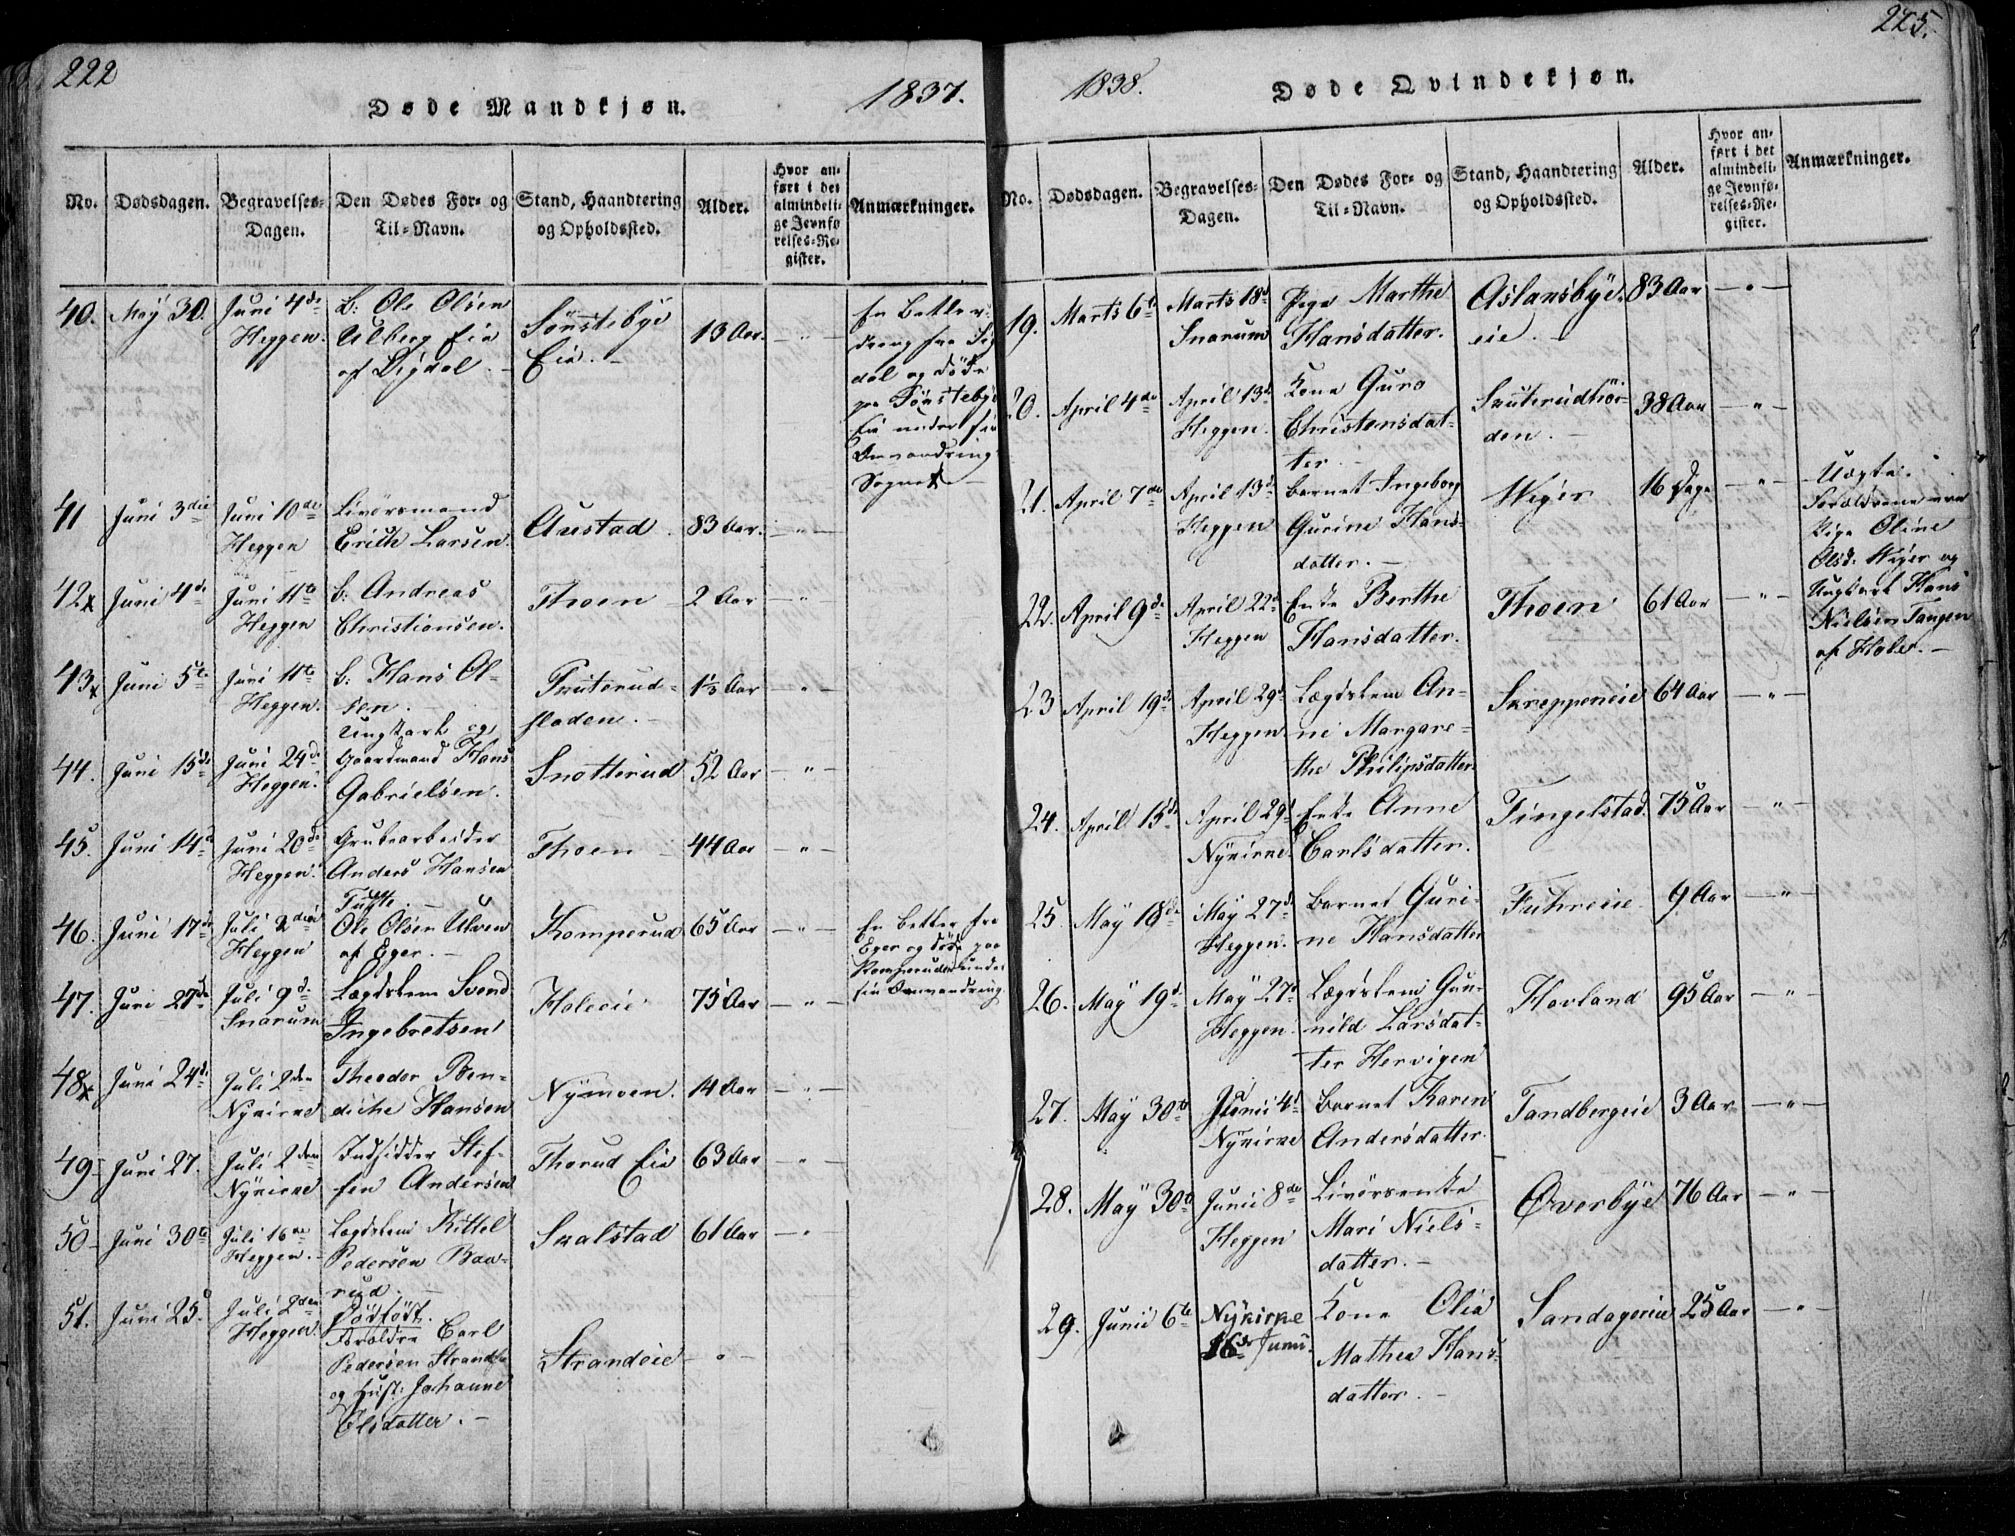 222
Døde Mandkjøn.
1837.
No.
Dødsdagen.
Begravelses-
Dagen.
Den Dødes For- og
Til-Navn.
Stand, Haandtering
og Opholdssted.
Alder.
Hvor an-
ført i det
almindeli-
ge Jevnfø-
relses-Re-
gister.
Anmærkninger.
40. May 30. Juni 4de Heggen.
b: Ole Olsen
Ulberg Eie
af Sigdal.
Sønstebye
Eie.
13 Aar.
En Betler-
dreng fra Sig
dal og døde
paa Sønstebye
Eie under sin
Omvandring
Sognet
41 Juni 3die Juni 10de Heggen
Livørsmand
Erich Larsen.
Austad. 83 Aar.
42 Juni 4de Juni 11te Heggen
b: Andreas
Christiansen.
Thoen 2 Aar
43 Juni 5te Juni 11te Heggen.
b: Hans Ol-
sen.
Snuterud-
fladen. 1½ Aar
44. Juni 15de Juni 24de Heggen.
Ungkarl og
Gaardmand Hans
Gabrielsen.
Snotterud 52 Aar
45. Juni 14de Juni 20de Heggen.
Grubearbeider
Anders Hansen
Tufte.
Thoen 44 Aar
46. Juni 17de Juli 2den Heggen
Ole Olsen Ulven
af Eger.
Komperud 65 Aar
En Betler fra
Eger og døde paa
Komperud under
sin Omvandring
47. Juni 27de Juli 9de Snarum
Lægdslem Svend
Ingebretsen
Holeeie 75 Aar
48 Juni 24de Juli 2den Nykirke
Theodor Ben-
diche Hansen
Nymoen. 14 Aar
49 Juni 27. Juli 2den Nykirke
Indsidder Stef-
fen Andersen
Thorud Eie 63 Aar
50 Juni 30te Juli 16de Heggen.
Lægdslem Kittel
Pedersen Baa-
rud.
Skalstad 61 Aar
51. Juni 25 Juli 2den Heggen.
Dødfødt.
Forældre Carl
Pedersen Strandeie
og Hust: Johanne
Olsdatter.
Strandeie
225.
1838.
Døde Qvindekjøn.
No.
Dødsdagen.
Begravelses-
Dagen.
Den Dødes For- og
Til-Navn.
Stand, Haandtering
og Opholdssted.
Alder.
Hvor an-
ført i det
almindeli-
ge Jevnfø-
relses-Re-
gister.
Anmærkninger.
19. Marts 6te Marts 18de Snarum
Pige Marthe
Hansdatter.
Aslansbye
eie. 83 Aar
20. April 4de April 13de Heggen.
Kone Guro
Christensdat-
ter.
Snuterudtiør-
den. 38 Aar
21. April 7de April 13de Heggen
Barnet Ingeborg
Gurine Hans-
datter.
Wegér 16 Dage
Uægte.
Forældrene ere
Pige Oline
Olsd: Wegér og
Ungkarl Hans
Nielsen Tangen
af Hole.
22. April 9de April 22de Heggen
Enke Berthe
Hansdatter.
Thoen 61 Aar
23 April 19de April 29de Heggen
Lægdslem An-
ne Margare-
the Philipsdatter
Skreppeneie 64 Aar
24. April 15de April 29de Nykirke.
Enke Anne
Carlsdatter.
Tingelstad. 75 Aar
25. May 18de May 27de Heggen.
Barnet Guri-
ne Hansdatter
Fuhreeie 9 Aar
26. May 19de May 27de Heggen.
Lægdslem Gun-
nild Larsdat-
ter Hervigen
Hovland 95 Aar
27. May 30te Junii 4de Nykirke
Barnet Karen
Andersdatter.
Tandbergeie 3 Aar
28. May 30te Junii 8de Heggen
Livørsenke
Mari Niels-
datter.
Øverbye 76 Aar
29. Junii 6te Nykirke
16de Junii.
Kone Olia
Mathea Hans-
datter.
Sandageeie 25 Aar